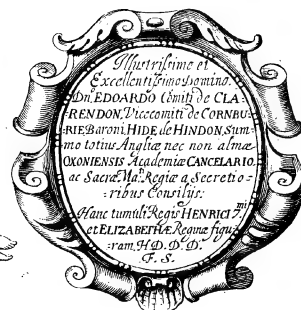 Illustrissimo et
Excellentissimo Domino,
Dn. EDOARDO Comiti de CLA-
RENDON, Vicecomiti de CORNBU-
RIE, Baroni HIDE de HINDON, Sum-
mo totius Angliæ nec non almæ
OXONIENSIS Academiæ CANCELARIO,
ac Sacræ Maᵗⁱˢ Regiæ a Secretio-
ribus Consilijs:
Hanc tumuli Regis HENRICI 7.ᵐⁱ
et ELIZABETHÆ Reginæ figu-
ram, H D. D. D.
F. S.